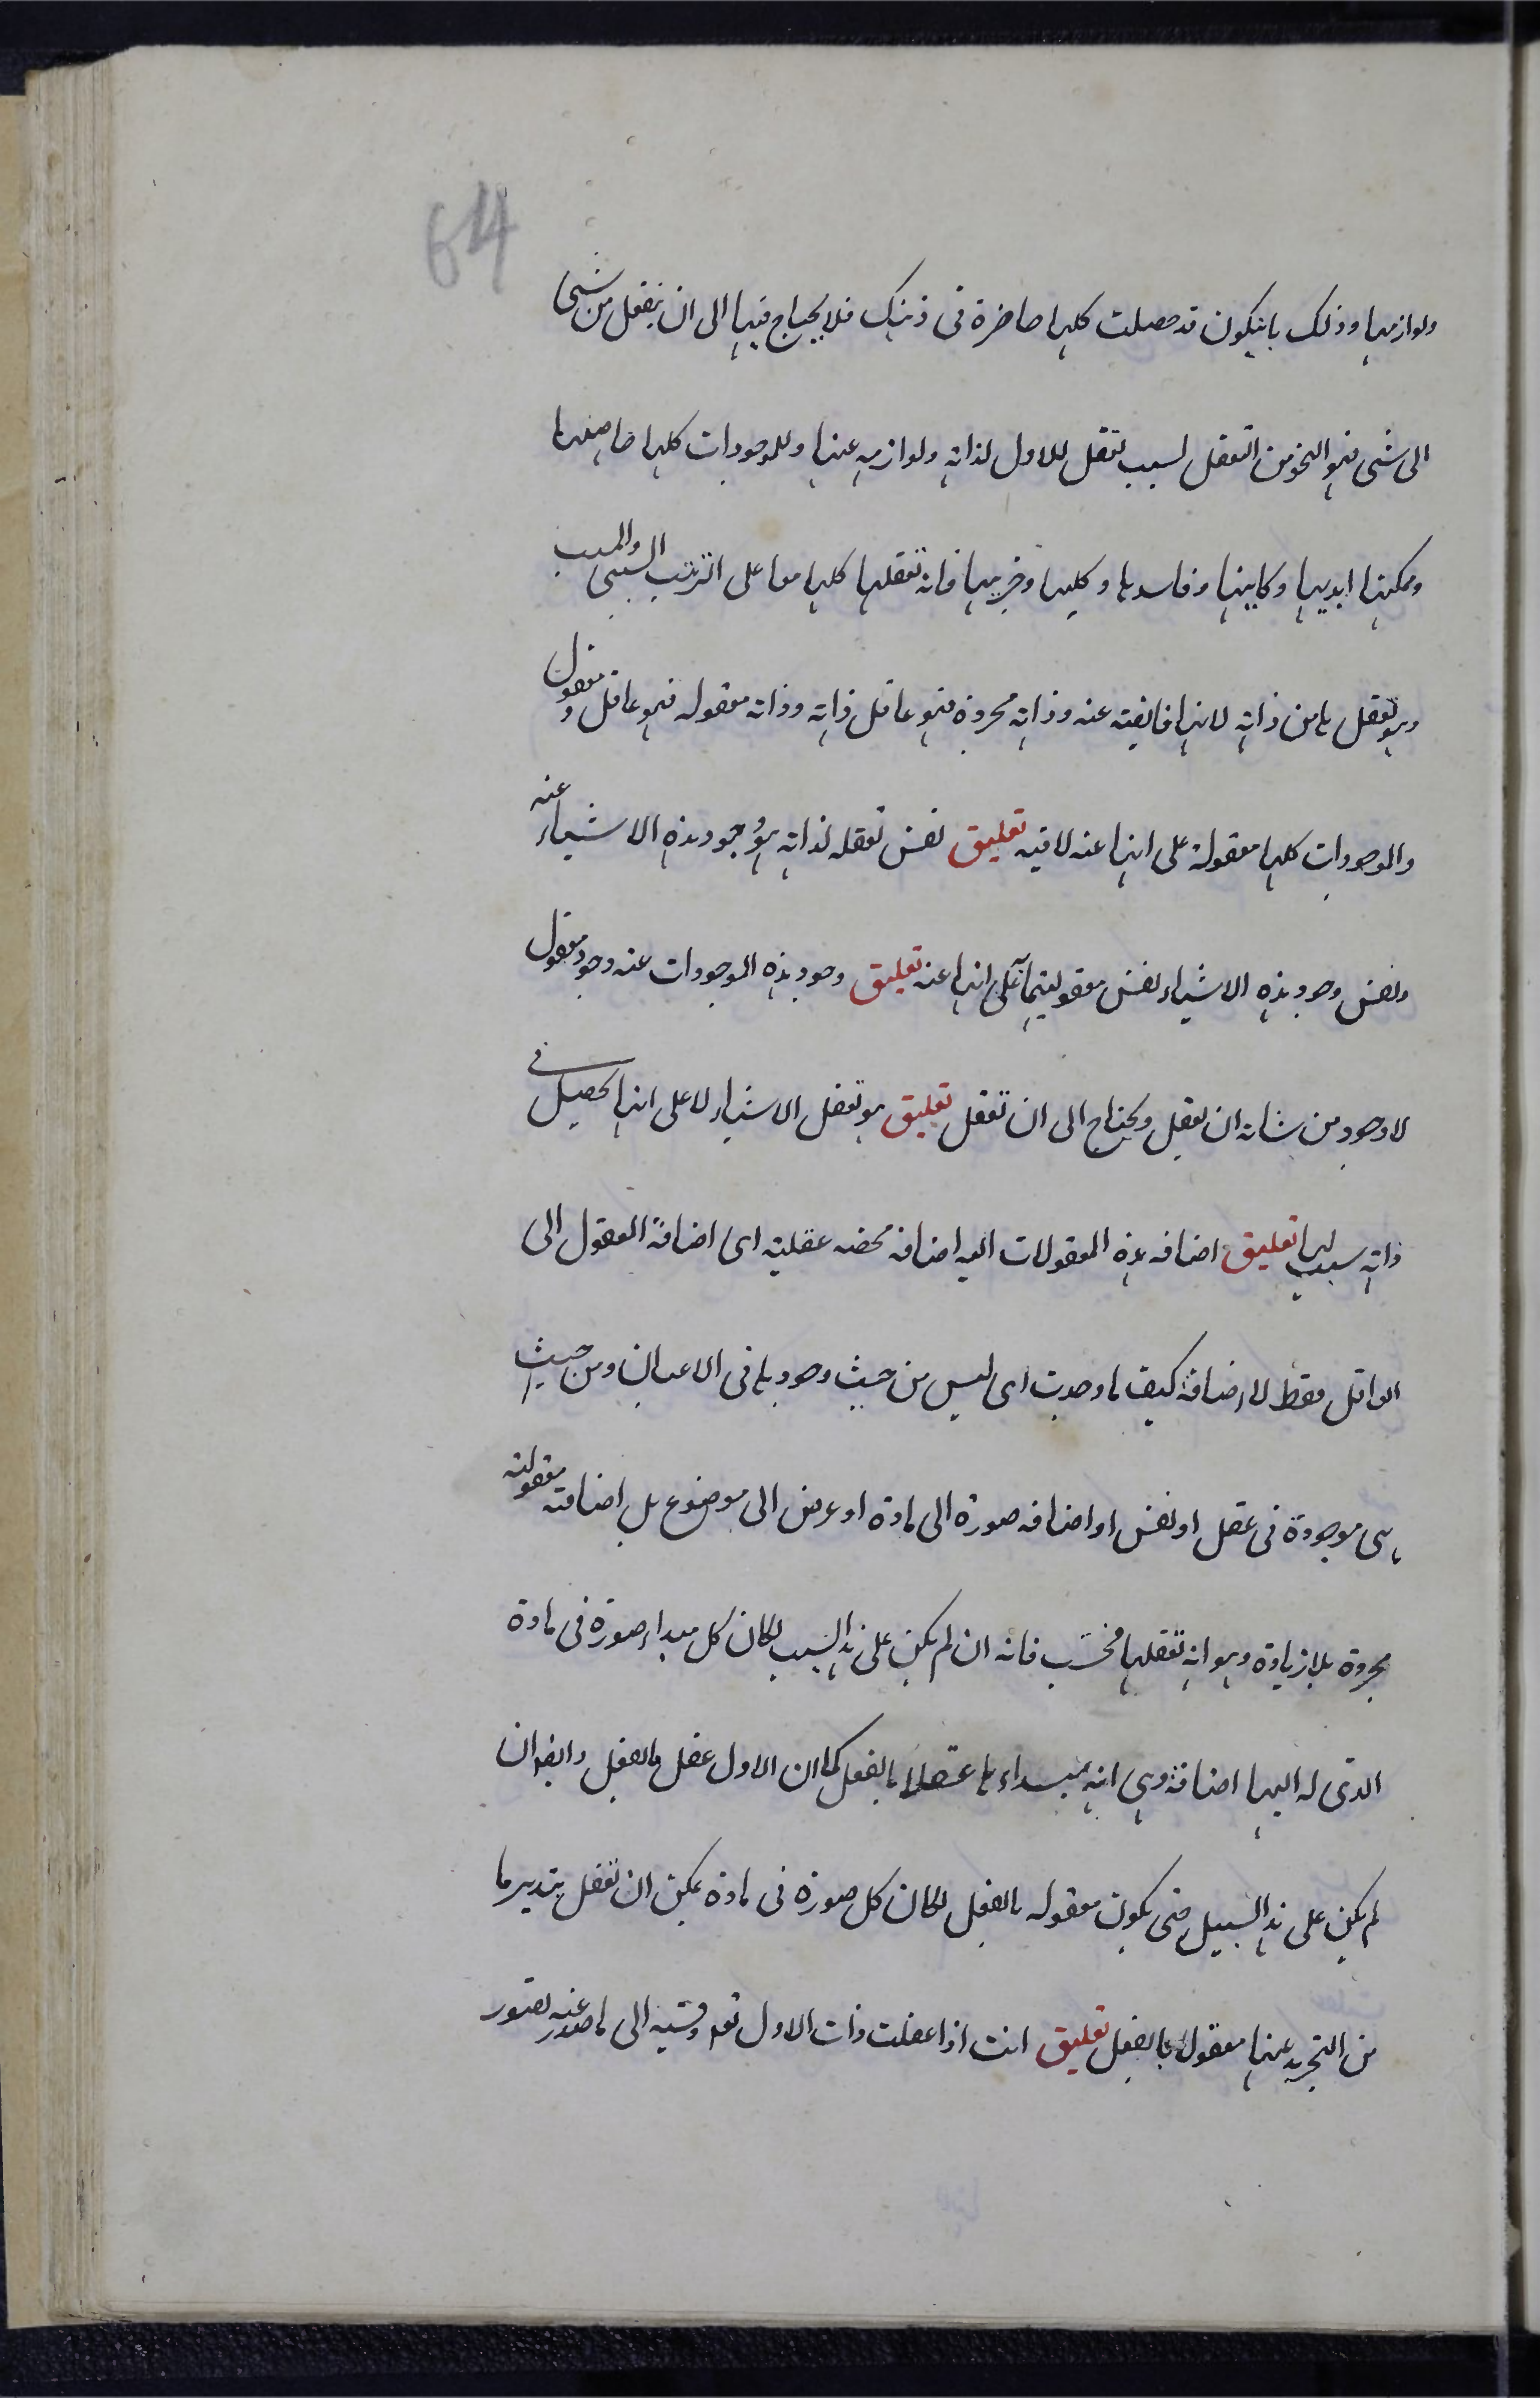 64
ولوازمها وذلك بانيكون قد حصلت كلها حاضرة فى ذهنك فلا يحتاج فيها الى ان ينفعل من شئ
الى شئ فهو النحو من التعقل لسبب تعقل للاول لذاته ولوازمه عنها وللموجودات كلها حاصلها
وممكنها ابديها وكاينها وفاسدها وكليها وجزييها فانه تعقلها كلها معا على الترتيب السببى والمسبب
وهو تعقل ها من ذاته لانها فايضة عنه وذاته مجردة فهو عاقل ذاته وذاته معقوله فهو عاقل ومعقول
والموجودات كلها معقولة على انها عنه لا فيه تعليق نفس تعقله لذاته هو وجود هذه الاشياء عنه
ونفس وجود هذه الاشياء نفس معقوليتها على انها عنه تعليق وجود هذه الموجودات عنه وجود معقول
لا وجود من شانه ان يعقل ويحتاج الى ان تعقل تعليق هو تعقل الاشياء لا على انها تحصيل فى
ذاته بسبب لها تعليق اضافه هذه المعقولات اليه اضافه محضه عقلية اى اضافة المعقول الى
العاقل فقط لا اضافة كيف ما وجدت اى ليس من حيث وجودها فى الاعيان ومن حيث
هى موجودة فى عقل او نفس او اضافه صورة الى مادة او عرض الى موضوع بل اضافته معقولته
مجردة بلا زيادة وهو انه تعقلها فحسب فانه ان لم يكن على هذا السبب لكان كل مبداء صورة فى مادة
الذى له اليها اضافة وهى انه مبداءها عقلا بالفعل كما ان الاول عقل بالفعل وايضا ان
لم يكن على هذا السبيل حتى يكون معقوله بالفعل لكان كل صورة فى مادة يمكن ان تعقل بتدبير ما
من التجريد عنها معقولا بالفعل تعليق انت اذا عقلت ذات الاول الى ما صدر عنه تصور